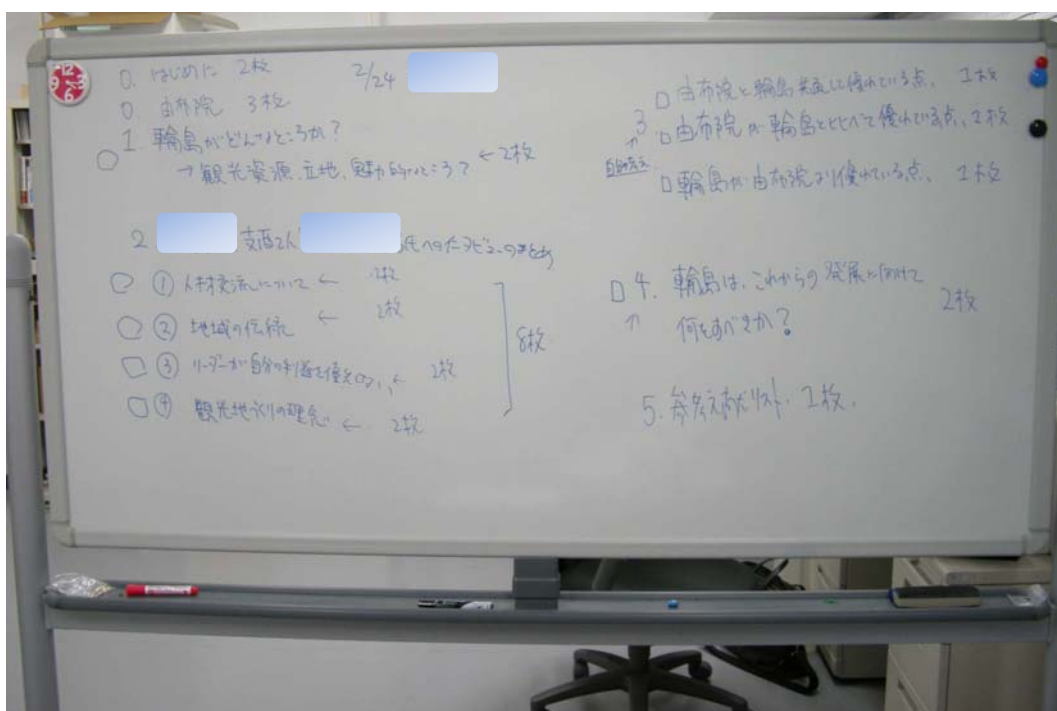 0. はじめに 2枚 2/24
0. 由布院 3枚
1. 輪島がどんなところか?
→観光資源、立地、魅力的なところ? ←2枚
2 支配人 氏へのインタビューのまとめ
① 人材交流について ← 2枚
② 地域の伝統 ← 2枚
③ リーダーが自分の利益を優先 ← 2枚
④ 観光地づくりの理念 ← 2枚
8枚
3
↑
□由布院と輪島共通して優れている点、1枚
□由布院が輪島とくらべて優れている点、2枚
□輪島が由布院より優れている点、1枚
□4. 輪島は、これからの発展に向けて
↑ 何をすべきか? 2枚
5. 参考文献リスト. 1枚.
12
3
6
9